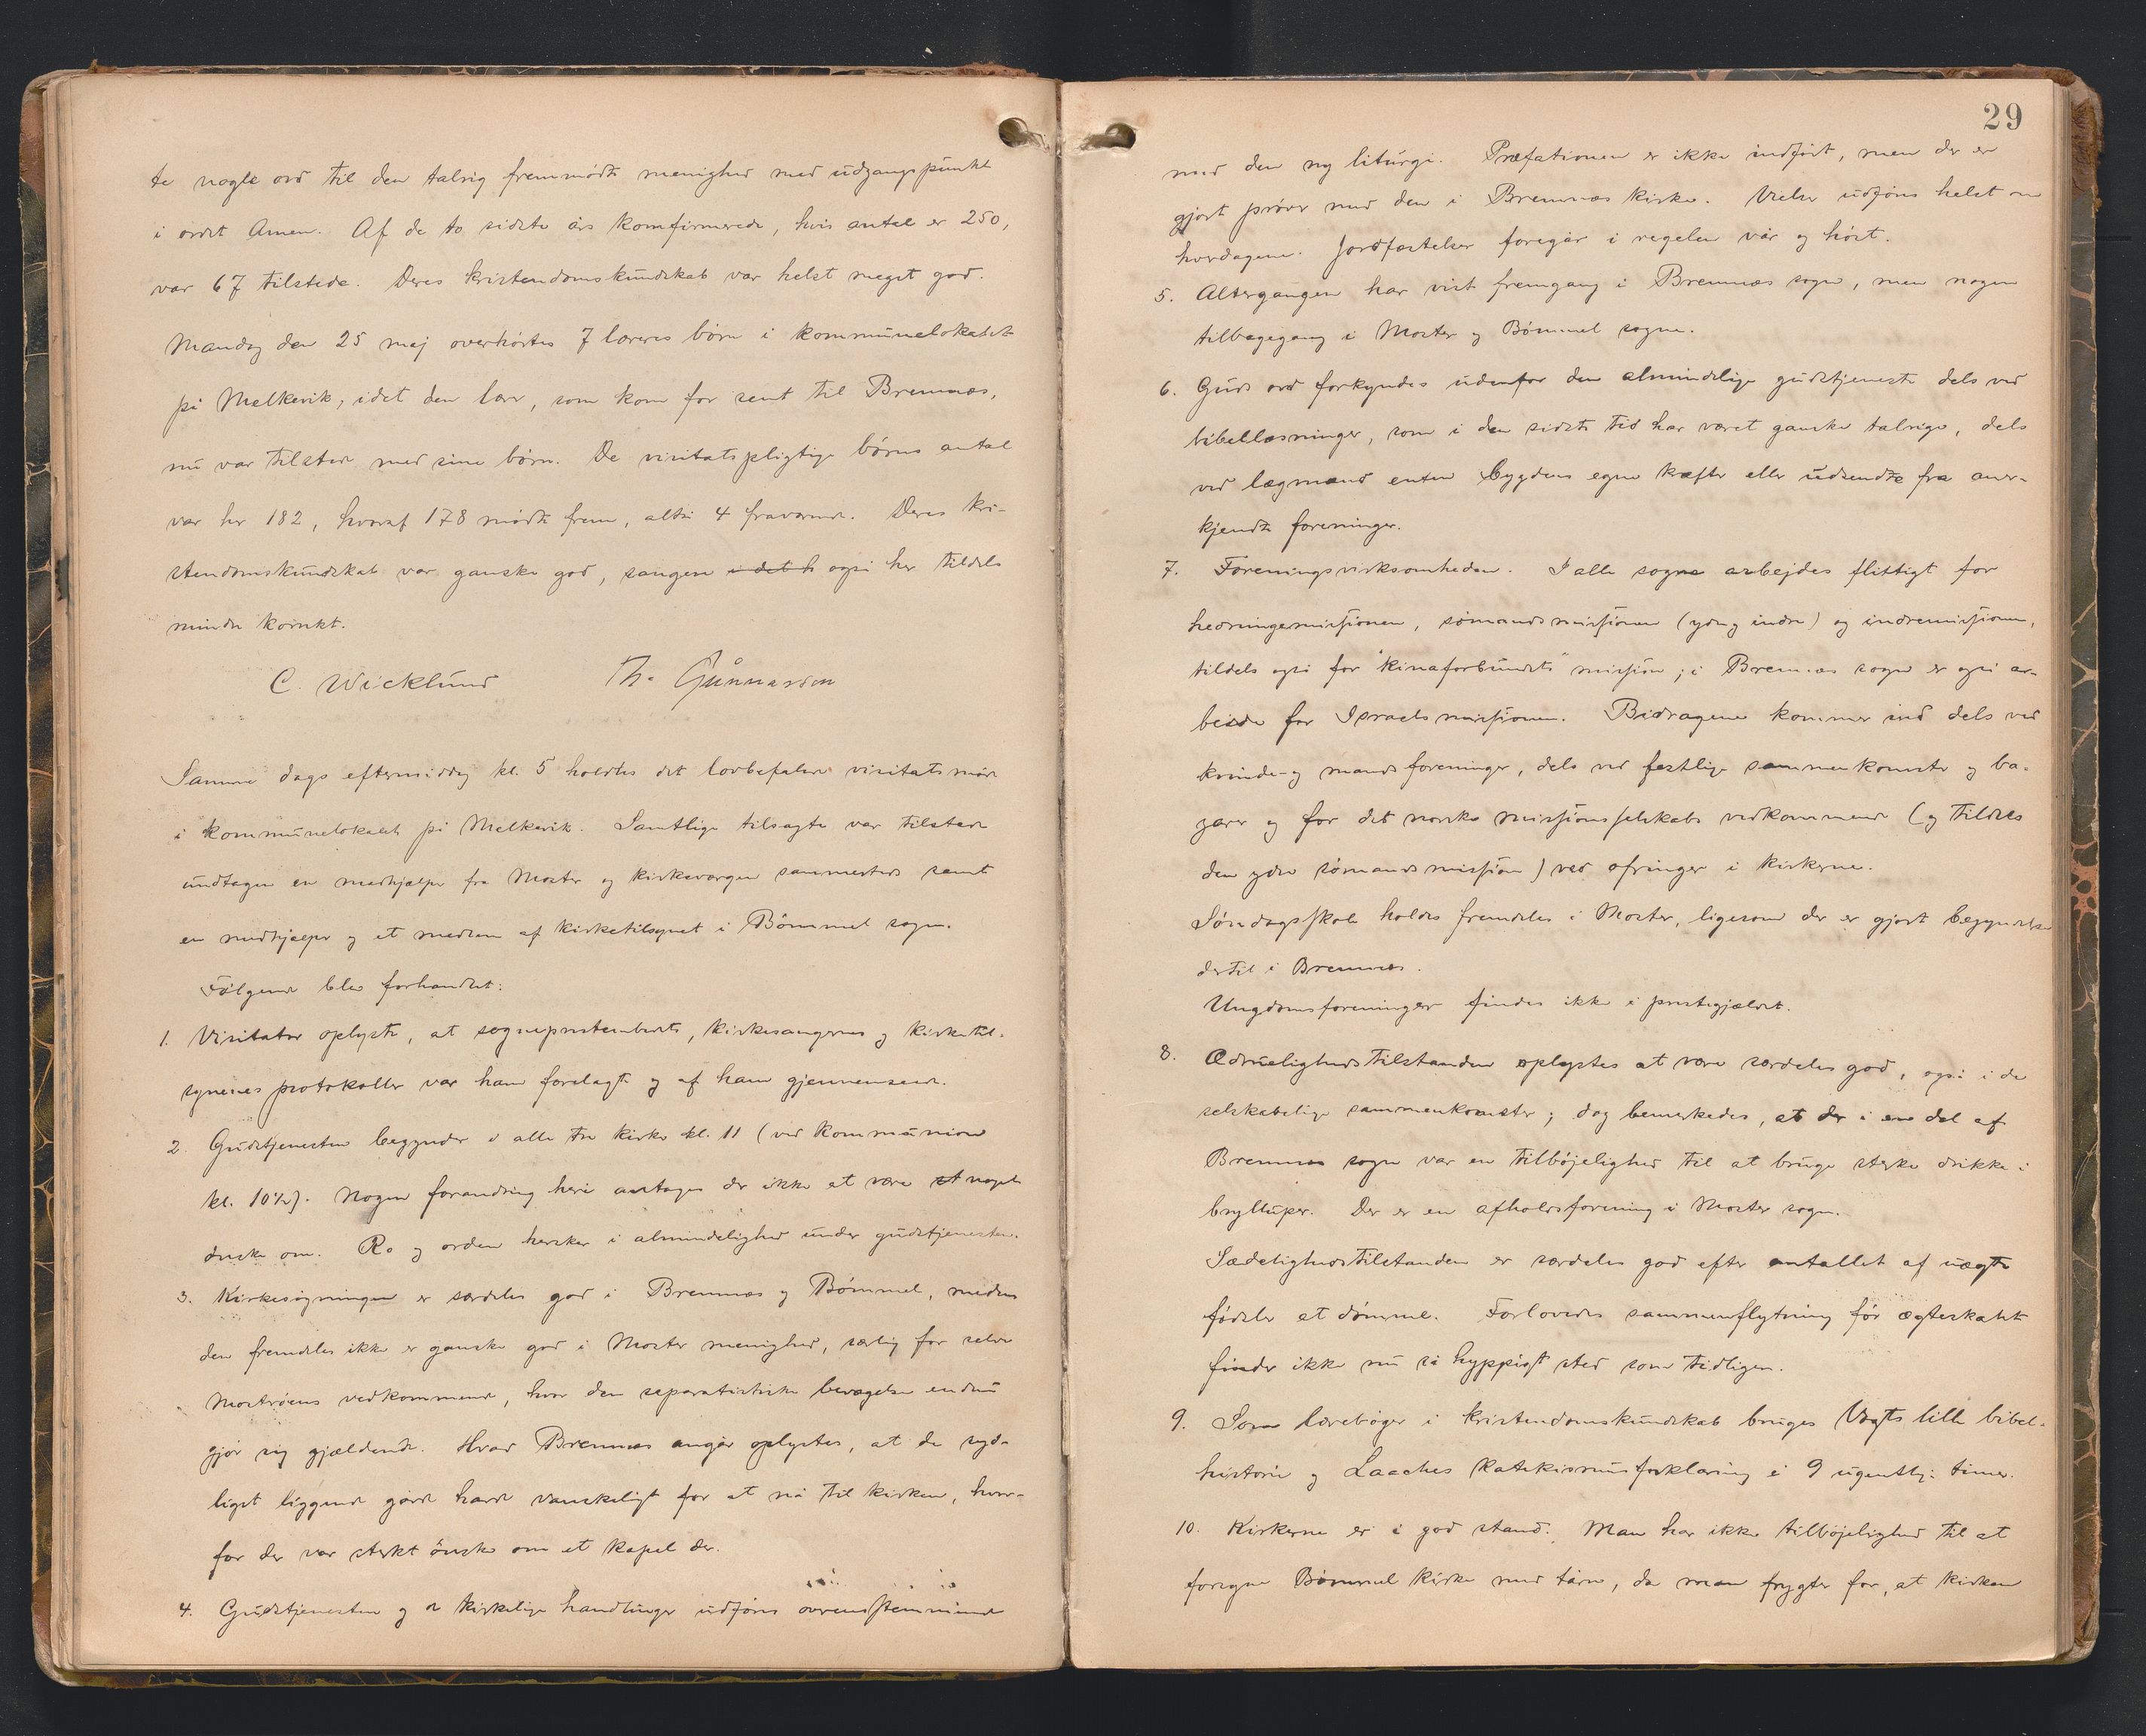 te nogle ord til den talrig fremmødte menighed med udgangspunkt
i ordet Amen. Af de to sidste års komfirmerede, hvis antal er 250,
var 67 tilstede. Deres kristendomskundskab var helst meget god.
Mandag den 25 maj overhørtes 7 læreres børn i kommunelokalet
på Melkevik, idet den lærer, som kom for sent til Bremnæs,
nu var tilstede med sine børn. De visitatspligtige børns antal
var her 182, hvoraf 178 mødte frem, altså 4 fraværende. Deres kri-
stendomskundskab var ganske god, sangen i det h også her tildels
mindre korrekt.
C. Wicklund Th. Gunnarson
Samme dags eftermiddag kl. 5 holdtes det lovbefalede visitatsmøde
i kommunelokalet på Melkevik. Samtlige tilsagte var tilstede
undtagen en medhjælper fra Moster og kirkeværgen sammesteds samt
en medhjælper og et medlem af kirketilsynet i Bømmel sogn.
Følgende blev forhandlet:
1. Visitator oplyste, at sogneprestembedets, kirkesangernes og kirketil-
synenes protokoller var ham forelagt og af ham gjennemseede.
2. Gudstjenesten begynder i alle tre kirker kl. 11 (ved kommunion
kl. 10½). Nogen forandring heri antages der ikke at være et noget
ønske om. Ro og orden hersker i almindelighed under gudstjenesten.
3. Kirkesøgningen er særdeles god i Bremnæs og Bømmel, medens
den fremdeles ikke er ganske god i Moster menighed, særlig for selve
Mosterøens vedkommende, hvor den separatistiske bevægelse endnu
gjør sig gjældende. Hvad Bremnæs angår oplystes, at de syd-
ligst liggende gårde havde vanskeligt for at nå til kirken, hvor-
for der var sterkt ønske om et kapel der.
4. Gudstjenesten og de kirkelige handlinger udføres overensstemmende
29
med den ny liturgi. Præfationen er ikke indført, men der er
gjort prøver med den i Bremnæs kirke. Vielser udføres helst om
hverdagene. Jordfæstelser foregår i regelen vår og høst.
5. Altergangen har vist fremgang i Bremnæs sogn, men nogen
tilbagegang i Moster og Bømmel sogne.
6. Guds ord forkyndes udenfor den almindelige gudstjeneste dels ved
bibellæsninger, som i den sidste tid har været ganske talrige, dels
ved lægmænd enten bygdens egne kræfter eller udsendte fra aner-
kjendte foreninger.
7. Foreningsvirksomheden. I alle sogne arbejdes flittigt for
hedningemissionen, sømandsmissionen (ydre og indre) og indremissionen,
tildels også for "kinaforbundets" mission; i Bremnæs sogn er også ar-
beide for Israelsmissionen. Bidragene kommer ind dels ved
kvinde- og mandsforeninger, dels ved festlige sammenkomster og ba-
zarer og for det norske missionsselskabs vedkommende (og tildels
den ydre sømandsmission) ved ofringer i kirkerne.
Søndagsskole holdes fremdeles i Moster, ligesom der er gjort begyndelse
dertil i Bremnæs.
Ungdomsforeninger findes ikke i prestegjældet.
8. Ædruelighedstilstanden oplystes at være særdeles god, også i de
selskabelige sammenkomster; dog bemerkedes, at der i en del af
Bremnæs sogn var en tilbøjelighed til at bruge sterke drikke i
bryllupper. Der er en afholdsforening i Moster sogn.
Sædelighedstilstanden er særdeles god efter antallet af uægte
fødsler at dømme. Forlovedes sammenflytning før ægteskabet
finder ikke nu så hyppigt sted som tidligere.
9. Som lærebøger i kristendomskundskab bruges Vogts lille bibel-
historie og Laaches katekismusforklaring i 9 ugentlige timer.
10. Kirkerne er i god stand. Man har ikke tilbøjelighed til at
forsyne Bømmel kirke med tårn, da man frygter for, at kirken